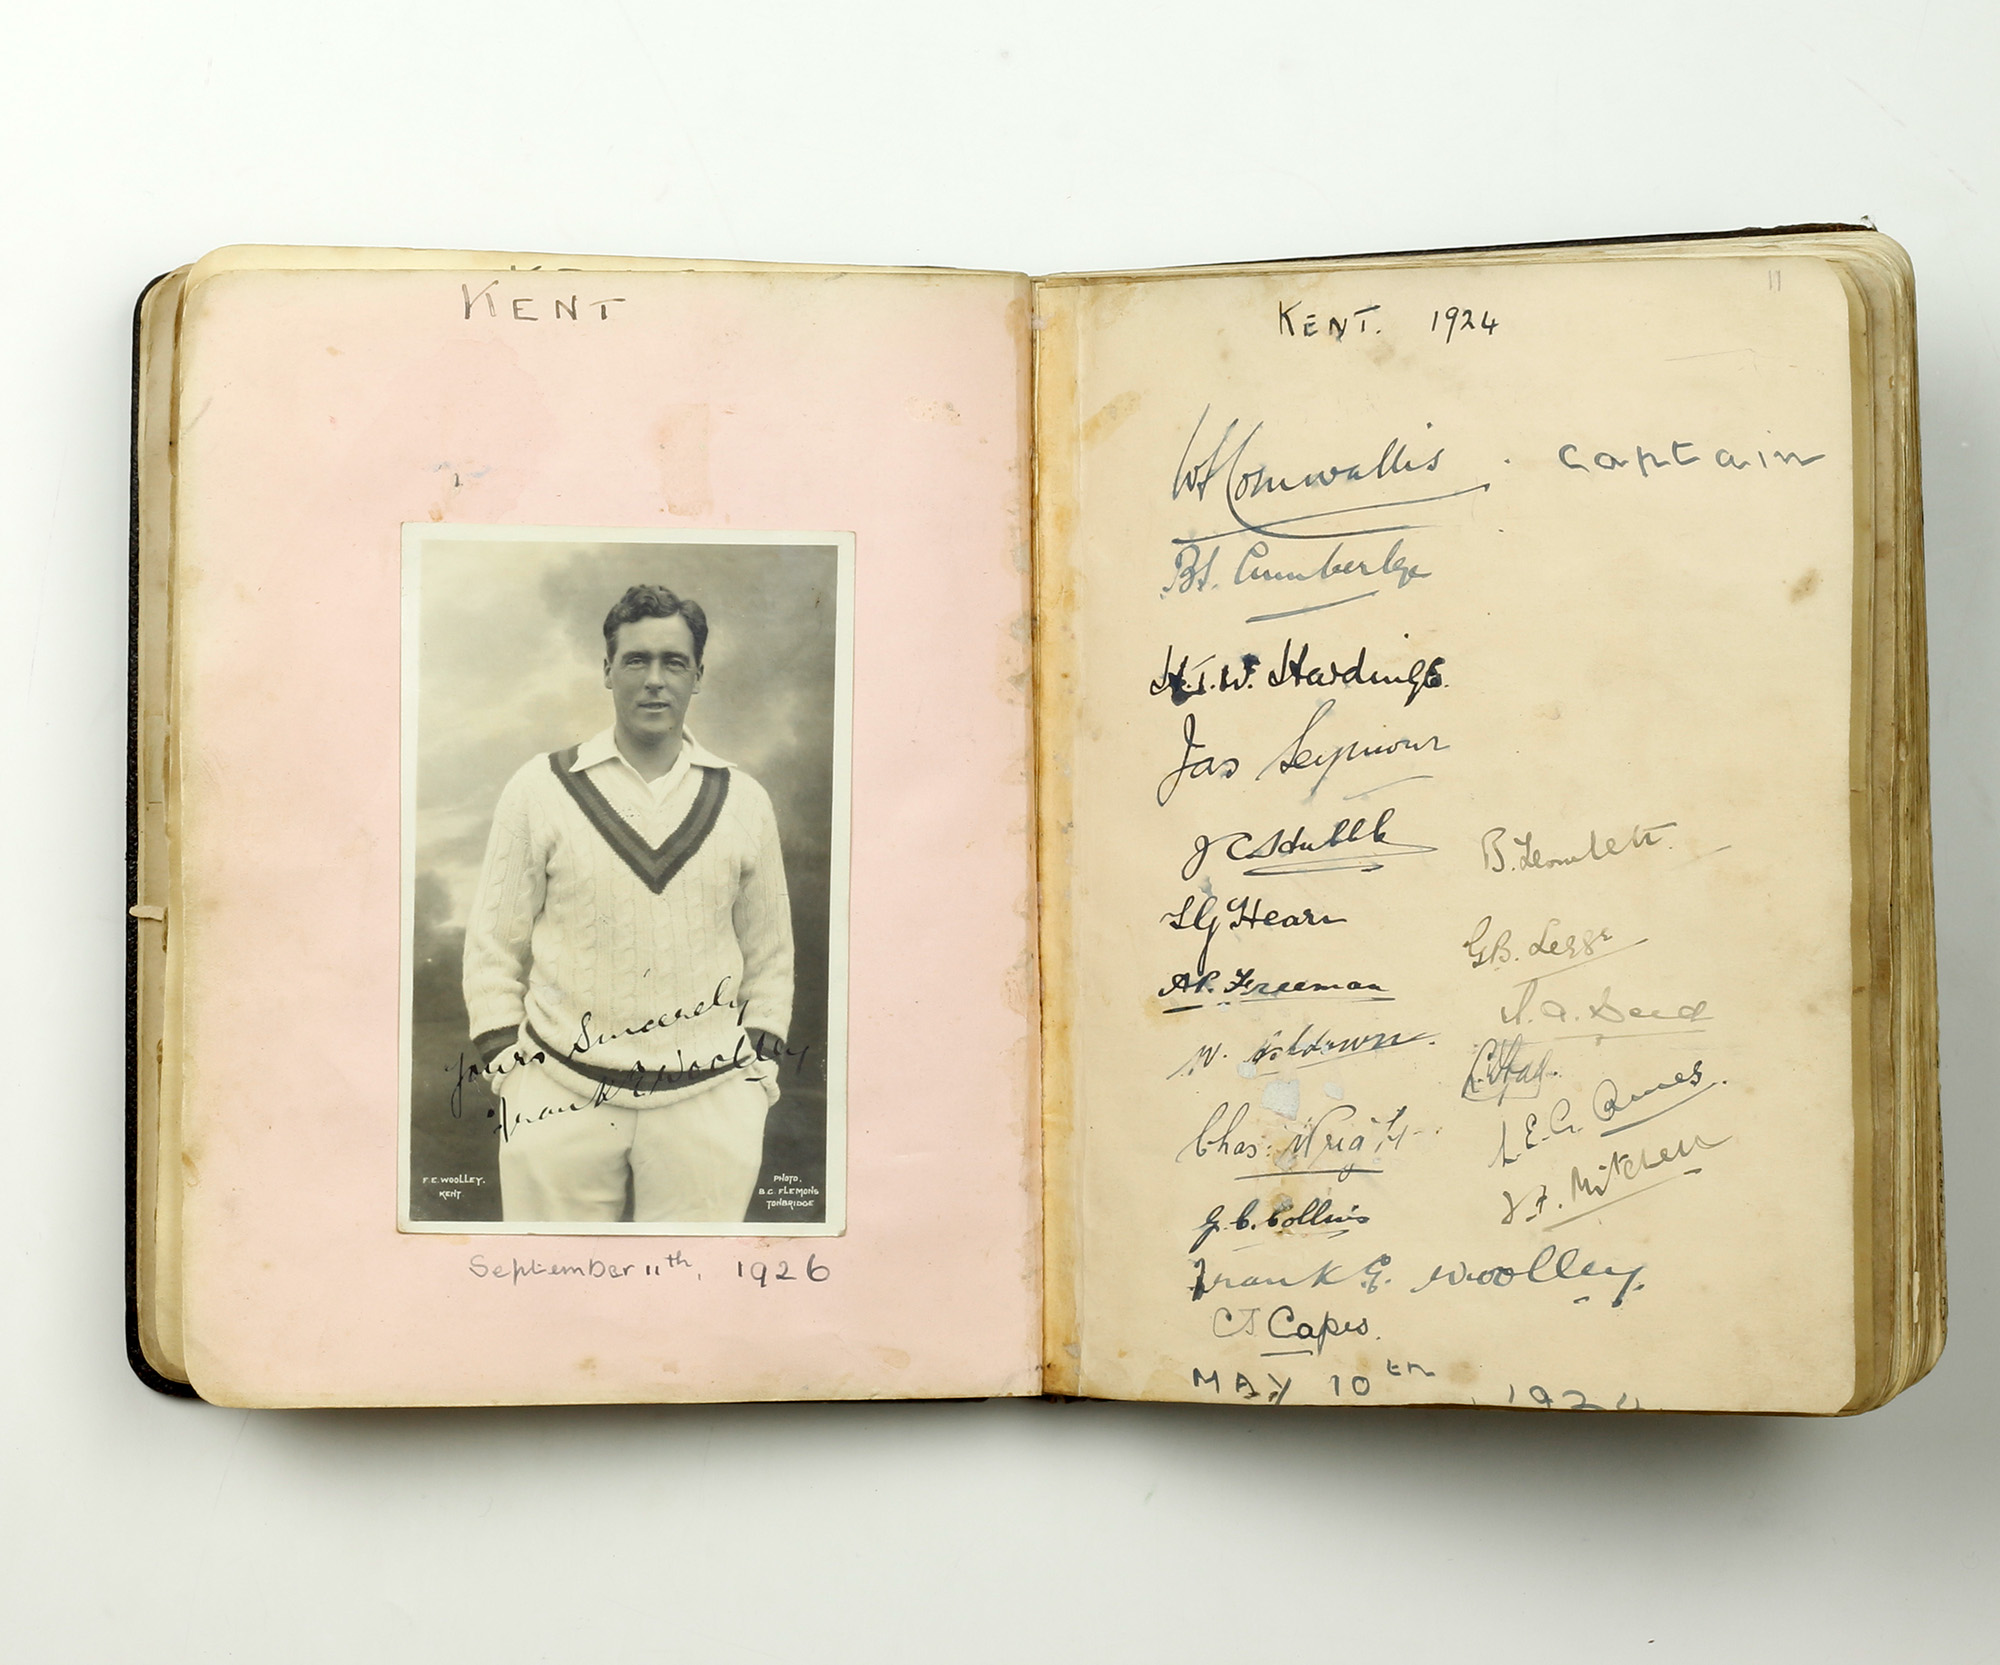 KENT
Yours Sincerely
Frank E Woolley
F.E. WOOLLEY.
KENT
PHOTO.
B.C. FLEMONS
TONBRIDGE
September 11th, 1926
11
KENT. 1924
WS Cornwallis . Captain
BS. Cumberlege
H.T.W. Hardinge.
Jas Seymour
J C Hubble
B. Howlett.
S G Hearn
G.B. Legge
A.P. Freeman
J. A. Deed
W. Ashdown.
C. Fray.
L. E. G. Ames.
Chas: Wright
T. F. Mitchell
G. C. Collins
Frank E. Woolley.
CJ Capes.
MAY 10th, 1924